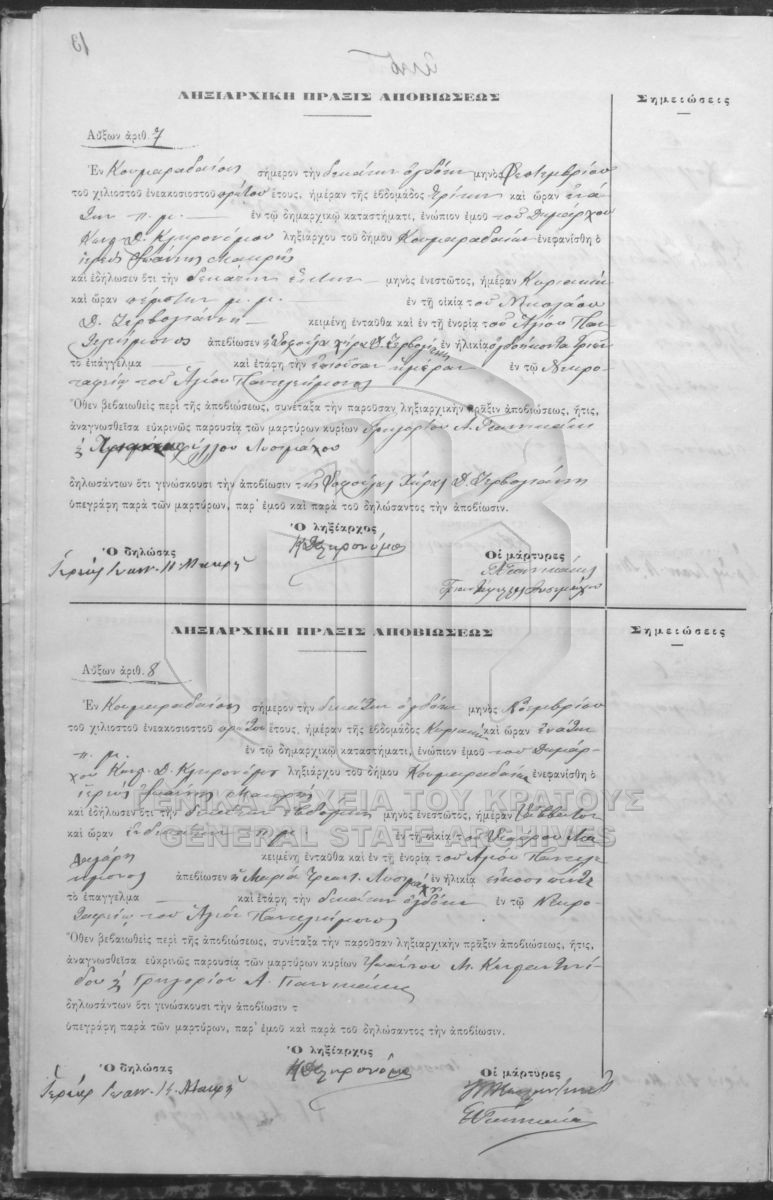 13
ΛΗΞΙΑΡΧΙΚΗ ΠΡΑΞΙΣ ΑΠΟΒΙΩΣΕΩΣ
Σημειώσεις
Αὔξων ἀριθ. 7
Ἐν Κουμαραδαίοις σήμερον τὴν δεκάτην ὀγδόην μηνὸς Σεπτεμβρίου
τοῦ χιλιοστοῦ ἐνεακοσιοστοῦ πρώτου ἔτους, ἡμέραν τῆς ἑβδομάδος Τρίτην καὶ ὥραν ἐνά
την π. μ. — ἐν τῷ δημαρχικῷ καταστήματι, ἐνώπιον ἐμοῦ τοῦ Δημάρχου
Κωνσ. Δ. Κληρονόμου ληξιάρχου τοῦ δήμου Κουμαραδαίων ἐνεφανίσθη ὁ
ἱερεὺς Ἰωάννης Μακρῆς
καὶ ἐδήλωσεν ὅτι τὴν δεκάτην ἕκτην — μηνὸς ἐνεστῶτος, ἡμέραν Κυριακὴν
καὶ ὥραν πέμπτην μ. μ. — ἐν τῇ οἰκίᾳ τοῦ Νικολάου
Δ. Ζερβογιάννη — κειμένῃ ἐνταῦθα καὶ ἐν τῇ ἐνορίᾳ τοῦ Ἁγίου Παν
τελεήμονος ἀπεβίωσεν ἡ χήρα Δ. Ζερβογιάννη ἐν ἡλικίᾳ ὀγδοήκοντα τριῶν
τὸ ἐπάγγελμα — καὶ ἐτάφη τὴν ἐπιοῦσαν ἡμέραν ἐν τῷ Νεκρο-
ταφείῳ τοῦ Ἁγίου Παντελεήμονος
Ὅθεν βεβαιωθεὶς περὶ τῆς ἀποβιώσεως, συνέταξα τὴν παροῦσαν ληξιαρχικὴν πρᾶξιν ἀποβιώσεως, ἥτις,
ἀναγνωσθεῖσα εὐκρινῶς παρουσίᾳ τῶν μαρτύρων κυρίων Γρηγορίου Α. Γιαννικάκη
Λυσιμάχου
δηλωσάντων ὅτι γινώσκουσι τὴν ἀποβίωσιν τῆς χήρας Δ. Ζερβογιάννη
ὑπεγράφη παρὰ τῶν μαρτύρων, παρ' ἐμοῦ καὶ παρὰ τοῦ δηλώσαντος τὴν ἀποβίωσιν.
Ὁ ληξίαρχος
ΚΔΚληρονόμος
Ὁ δηλώσας
Οἱ μάρτυρες
Ἱερεὺς Ἰωαν. Μακρῆς
ΛΗΞΙΑΡΧΙΚΗ ΠΡΑΞΙΣ ΑΠΟΒΙΩΣΕΩΣ
Σημειώσεις
Αὔξων ἀριθ. 8
Ἐν Κουμαραδαίοις σήμερον τὴν δεκάτην ὀγδόην μηνὸς Νοεμβρίου
τοῦ χιλιοστοῦ ἐνεακοσιοστοῦ πρώτου ἔτους, ἡμέραν τῆς ἑβδομάδος Κυριακὴν καὶ ὥραν ἐνάτην
π. μ. ἐν τῷ δημαρχικῷ καταστήματι, ἐνώπιον ἐμοῦ τοῦ Δημάρ-
χου Κωνσ. Δ. Κληρονόμου ληξιάρχου τοῦ δήμου Κουμαραδαίων ἐνεφανίσθη ὁ
ἱερεὺς Ἰωάννης Μακρῆς
καὶ ἐδήλωσεν ὅτι τὴν δεκάτην ἑβδόμην μηνὸς ἐνεστῶτος, ἡμέραν Σάββατον
καὶ ὥραν ἑνδεκάτην π.μ. ἐν τῇ οἰκίᾳ τοῦ
κειμένῃ ἐνταῦθα καὶ ἐν τῇ ἐνορίᾳ τοῦ Ἁγίου Παντελε
ήμονος ἀπεβίωσεν ἡ Μαρία Τριαντ. Λυσιμάχου ἐν ἡλικίᾳ εἴκοσι πέντε
τὸ ἐπάγγελμα — καὶ ἐτάφη τὴν δεκάτην ὀγδόην ἐν τῷ Νεκρο-
ταφείῳ τοῦ Ἁγίου Παντελεήμονος
Ὅθεν βεβαιωθεὶς περὶ τῆς ἀποβιώσεως, συνέταξα τὴν παροῦσαν ληξιαρχικὴν πρᾶξιν ἀποβιώσεως, ἥτις,
ἀναγνωσθεῖσα εὐκρινῶς παρουσίᾳ τῶν μαρτύρων κυρίων
Γρηγορίου Α. Γιαννικάκη
δηλωσάντων ὅτι γινώσκουσι τὴν ἀποβίωσιν τ
ὑπεγράφη παρὰ τῶν μαρτύρων, παρ' ἐμοῦ καὶ παρὰ τοῦ δηλώσαντος τὴν ἀποβίωσιν.
Ὁ ληξίαρχος
ΚΔΚληρονόμος
Ὁ δηλώσας
Οἱ μάρτυρες
Ἱερεὺς Ἰωαν. Μακρῆς
ΓΕΝΙΚΑ ΑΡΧΕΙΑ ΤΟΥ ΚΡΑΤΟΥΣ
GENERAL STATE ARCHIVES